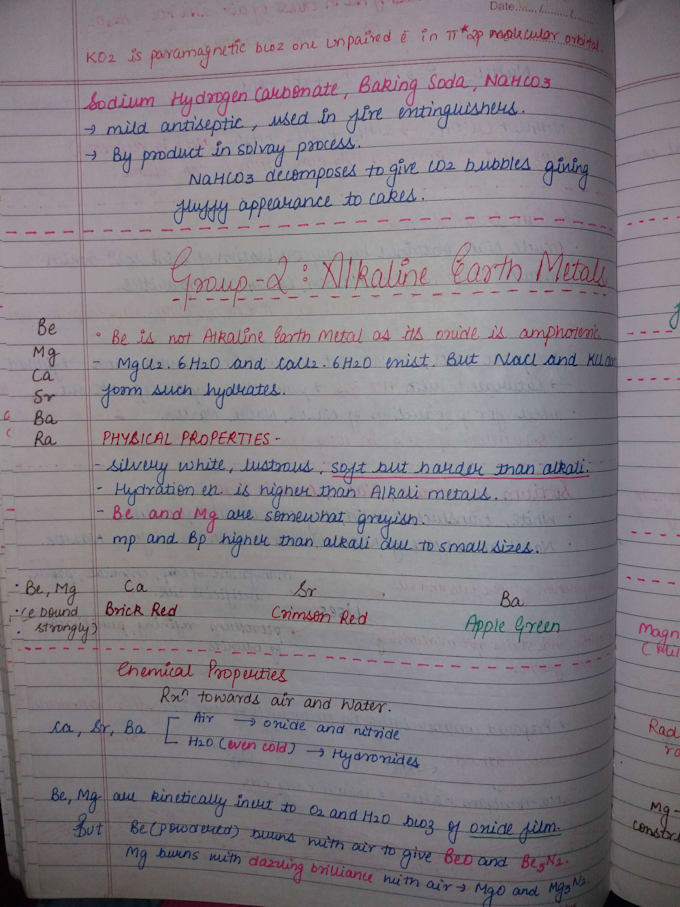 Date....../....../......
KO2 is paramagnetic bcoz one unpaired e in π*2p molecular orbital.
Sodium Hydrogen Carbonate, Baking Soda, NaHCO3
→ mild antiseptic, used in fire entinguishers.
→ By product in solvay process.
NaHCO3 decomposes to give CO2 bubbles giving
fluffy appearance to cakes.
Group-2: Alkaline Earth Metals
Be
Mg
Ca
Sr
Ba
Ra
• Be is not Alkaline Earth Metal as its oxide is amphoteric
- MgCl2.6H2O and CaCl2.6H2O exist. But NaCl and KCl
form such hydrates.
PHYSICAL PROPERTIES -
- silvery white, lustrous, soft but harder than alkali.
- Hydration en. is higher than Alkali metals.
- Be and Mg are somewhat greyish.
- mp and Bp higher than alkali due to small sizes.
• Be, Mg Ca Sr Ba
• (e bound Brick Red Crimson Red Apple Green
• strongly)
Chemical Properties
Rxn towards air and water.
Ca, Sr, Ba [ Air → oxide and nitride
H2O (even cold) → Hydroxides
Be, Mg are kinetically inert to O2 and H2O bcoz of oxide film.
But Be (powdered) burns with air to give BeO and Be3N2.
Mg burns with dazzling brilliance with air → MgO and Mg3N2.
Magn
Rad
Mg-
constr